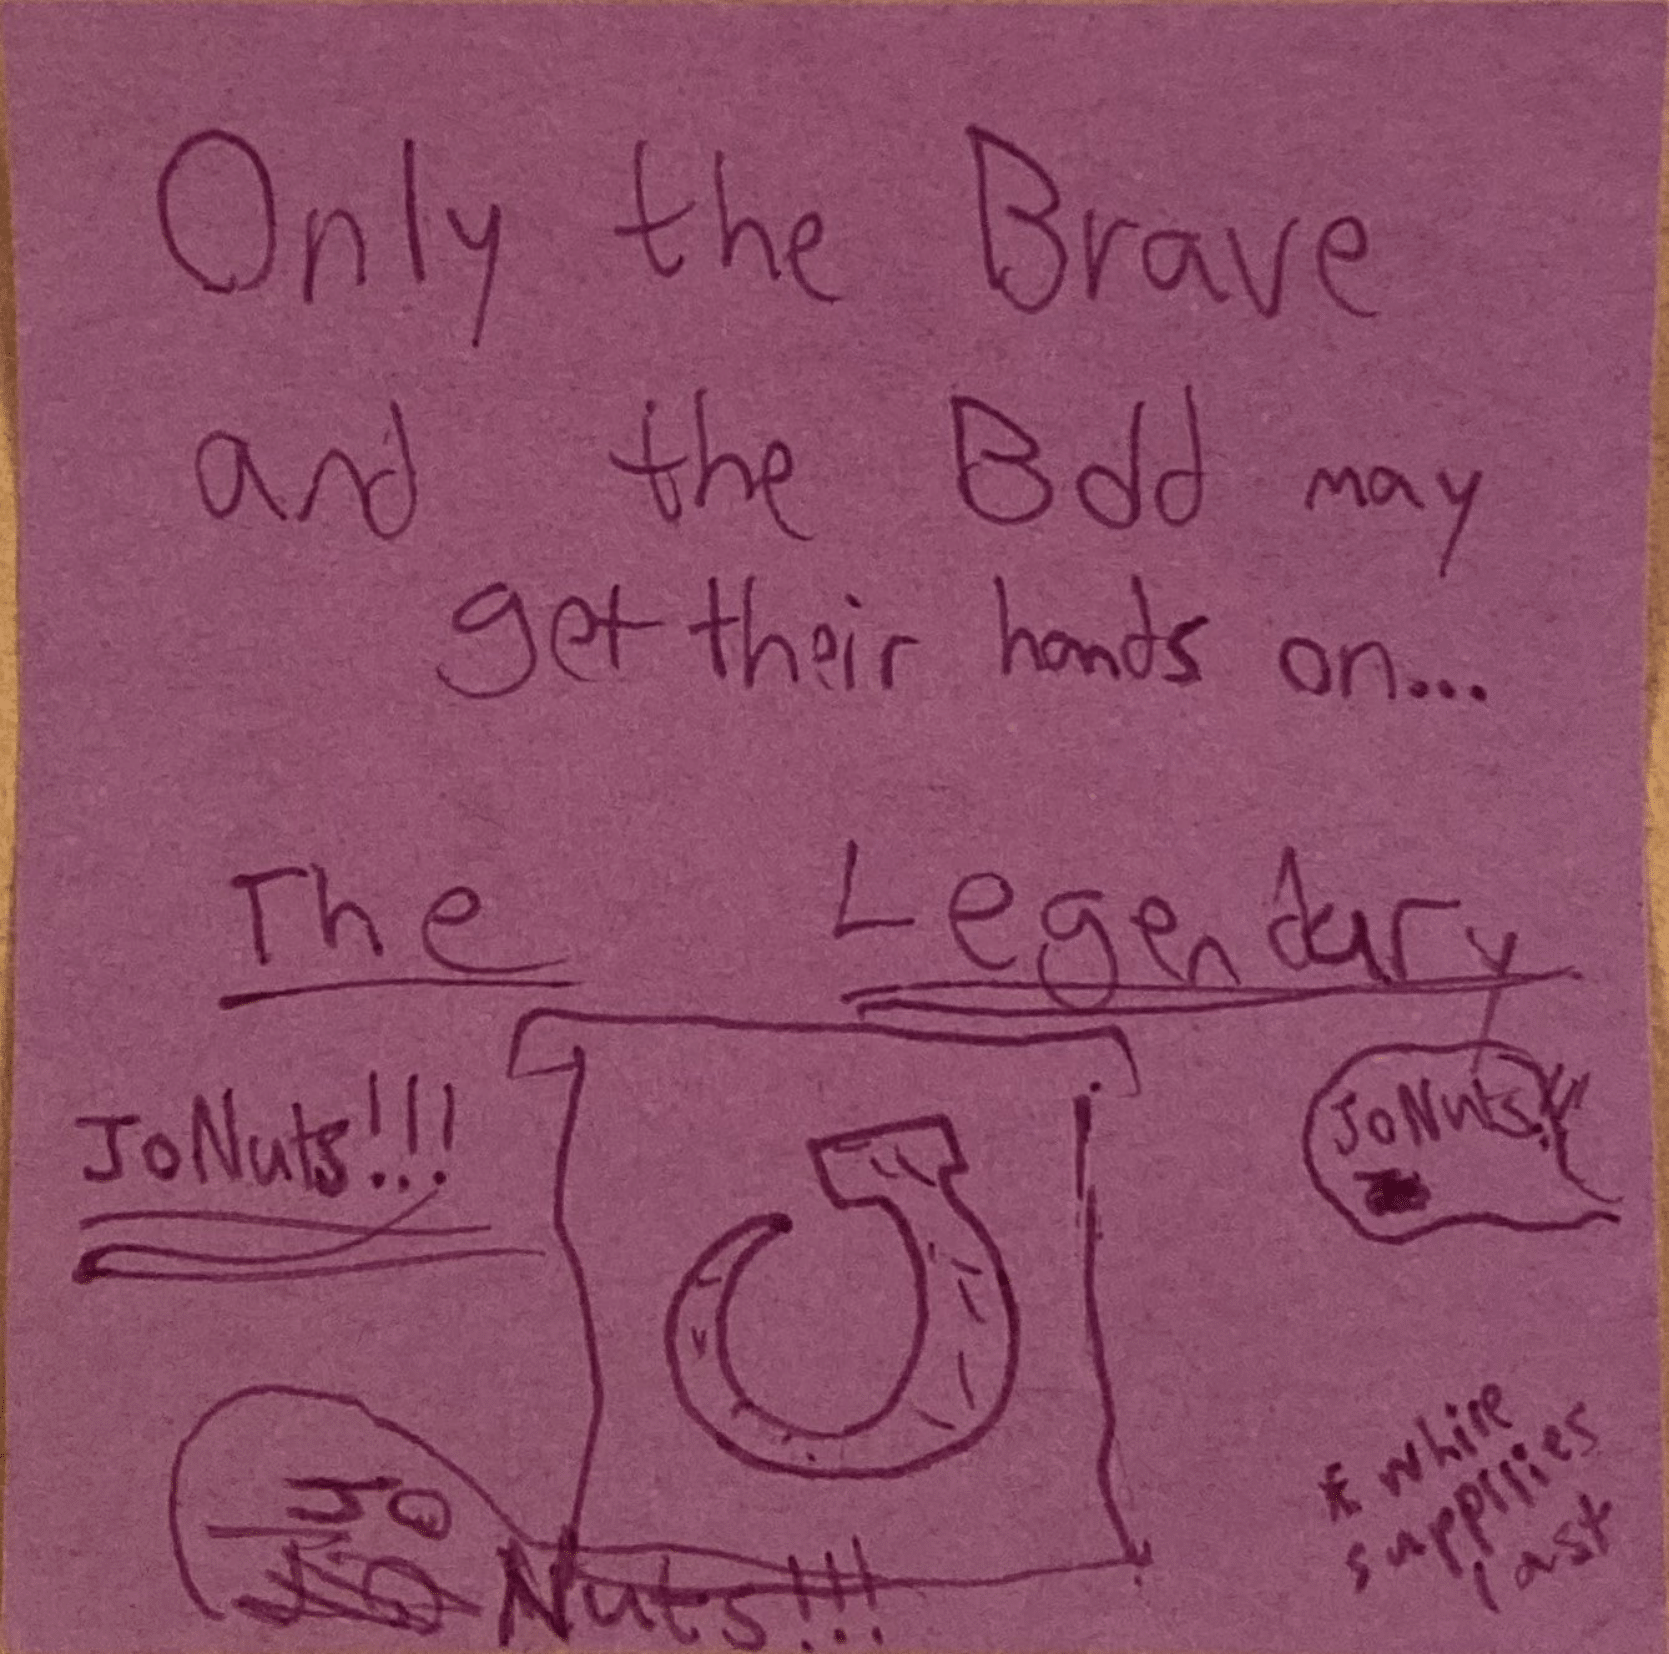 Only the Brave
and the Bold may
get their hands on...
The Legendary
JoNuts!!!
JoNuts!!
Jo
Nuts!!!
* while
supplies
last